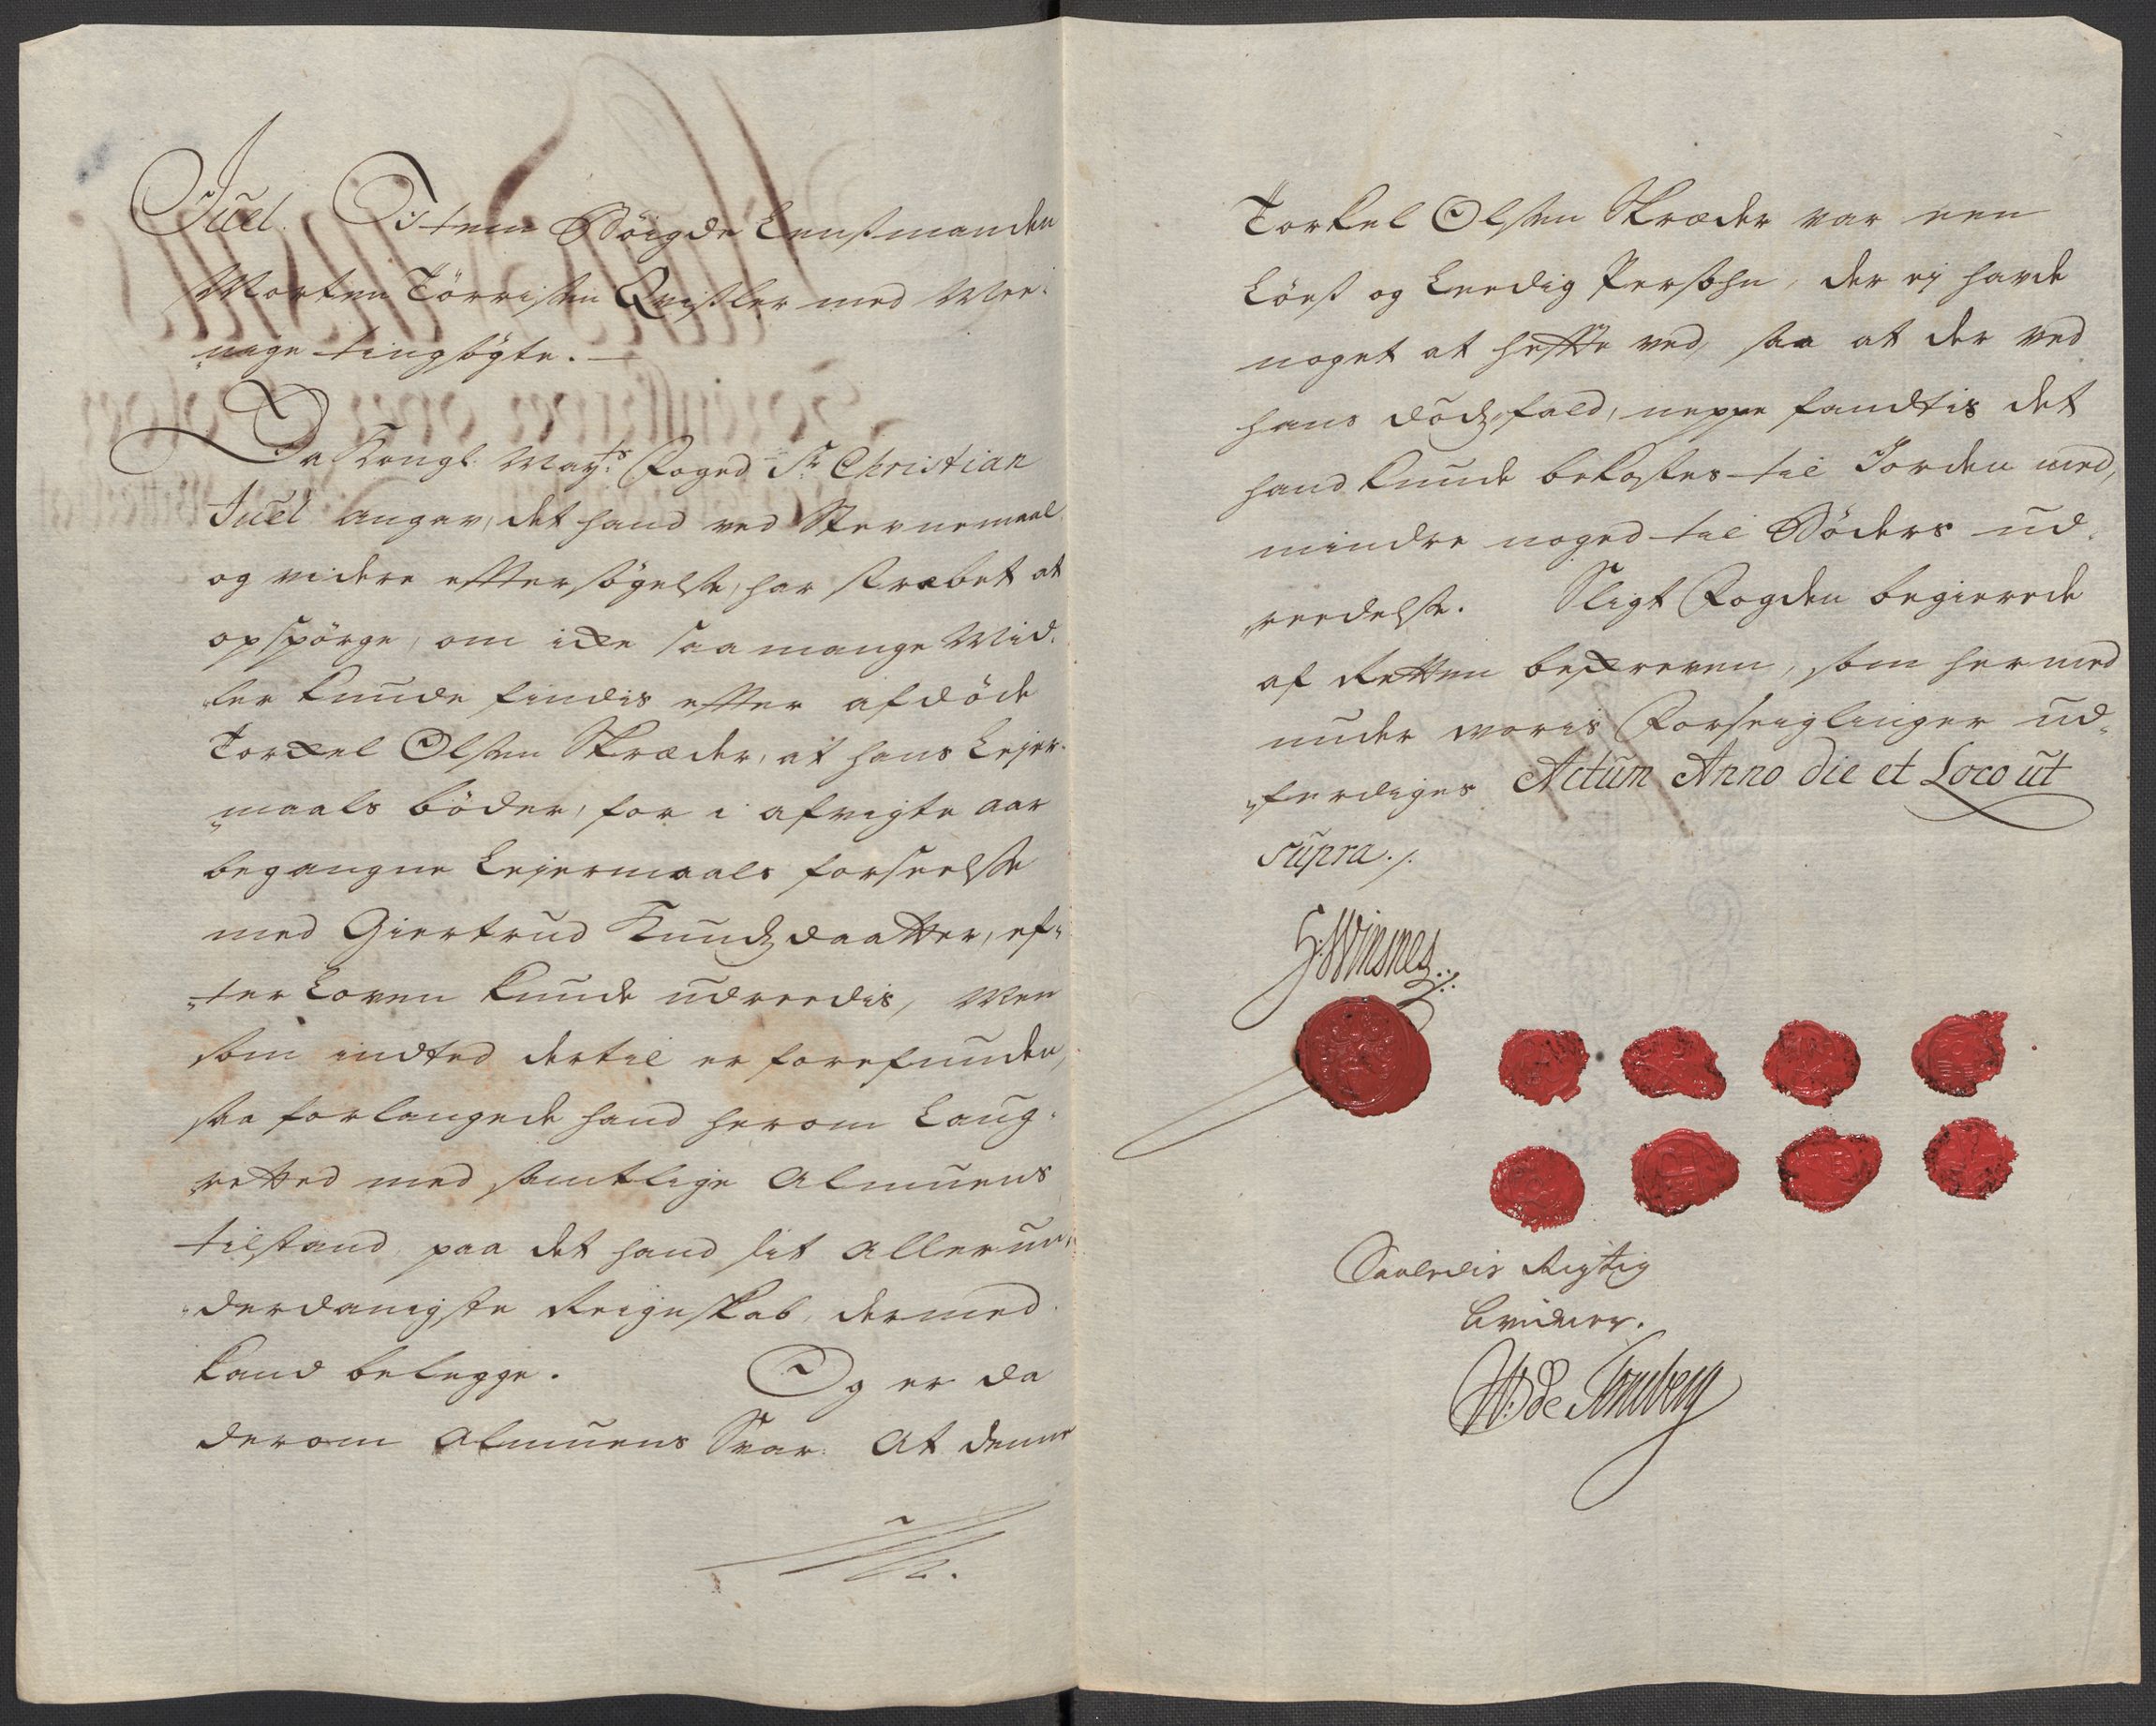 Juel. Istem Böigde Lensmanden
Morten Törrisen Qvisler med Mee-
nige tingsögte.
Da Kongl: Mayts Foged Sr Christian
Juel angav, det hand ved Stevnemaal
og videre efftersögelse, har stræbet at
opspörge, om icke saa mange Mid-
ler kunde findis effter afdöde
Torckel Olsen Skræder, at hans Lejer-
maals böder, for i afvigte aar
begangne Lejermaals forseelse
med Giertrud Knudsdaatter, ef-
ter Loven kunde udreedis, Men
som indted dertil er forefunden,
saa forlangede hand herom Laug-
retted med samtlige Almuens
tilstand, paa det hand sit allerun-
derdanigste Reigenskab, dermed
kand belegge. Og er da
derom Almuens Svar: At denne
Torkel Olsen Skræder var een
Löes og Leedig Persohn, der ej havde
noget at heffte ved, saa at der ved
hans dödsfald, neppe fandtis det
hand kunde bekostes til Jorden med,
mindre noged til Böders ud-
reedelse. Sligt Fogden begierede
af Retten beskreven, som hermed
under voris Forseiglinger ud-
ferdiges Actum Anno die et Loco ut
supra ./.
S: Winsnes
Saaledis Rigtig
Testerer
W: de Tonsberg